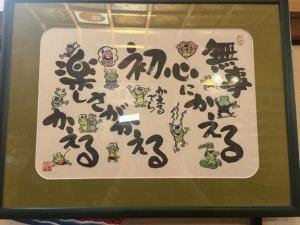 無事
かえる
初心に
かえる
かえる
でら
楽しさが
かえる